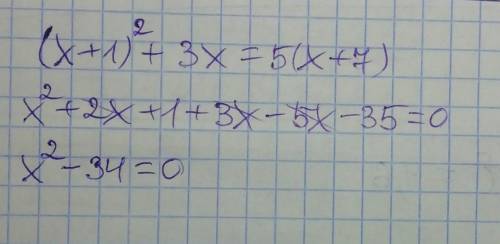 (x+1)² + 3x = 5(x+7)
x² + 2x + 1 + 3x - 5x - 35 = 0
x² - 34 = 0